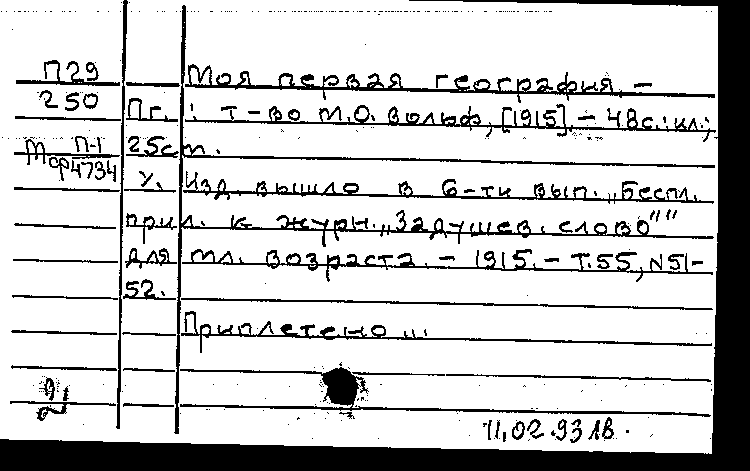 П29 Моя первая география. –
250 Пг. : т-во М.О. Вольф, [1915]. – 48с.: ил.;
П-1 25cm.
Мф ср4734 У. Изд. вышло в 6-ти вып. „Беспл.
прил. к журн. „Задушев. слово""
для мл. возраста. – 1915. – Т.55, N51-
52.
Приплетено ...
11.02.93